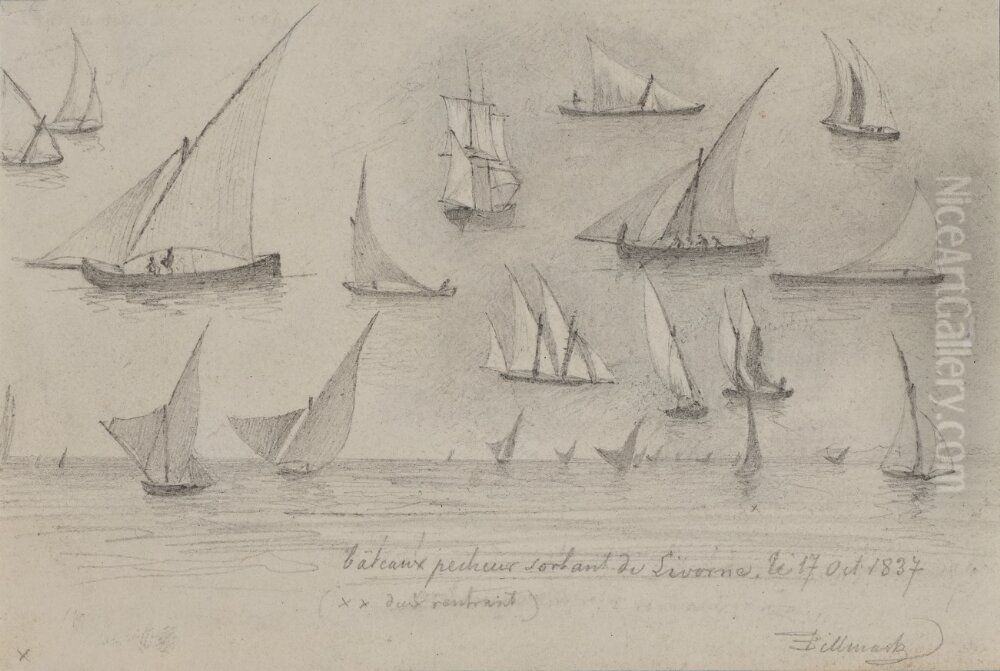 bâteaux pecheur sortant de Livorne, le 17 Oct 1837
( x x deux rentrant )
x
Billmark
NiceArtGallery.com